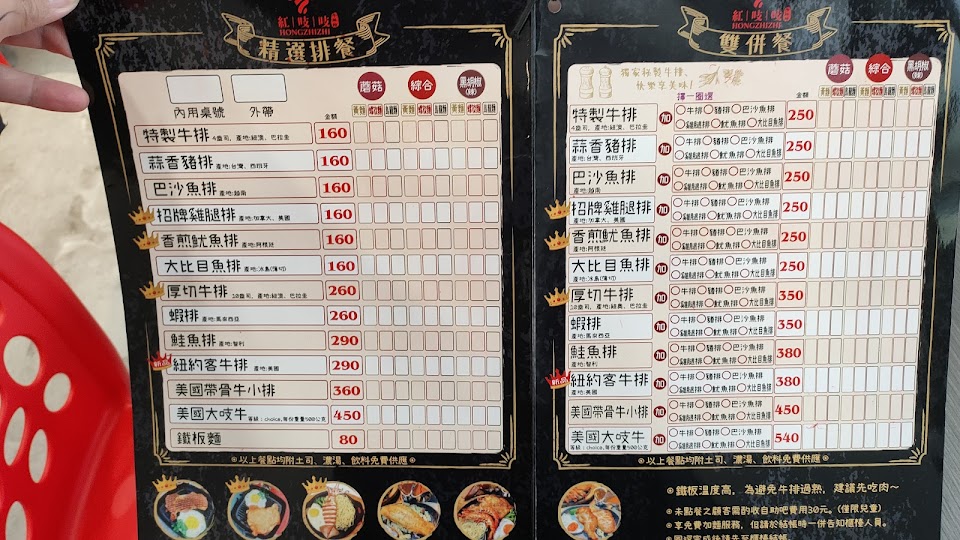 紅吱吱
HONGZHIZHI
精選排餐
內用桌號 外帶 金額 蘑菇 綜合 黑胡椒
特製牛排 4盎司、產地:紐澳、巴拉圭 160
蒜香豬排 產地:台灣、西班牙 160
巴沙魚排 產地:越南 160
招牌雞腿排 產地:加拿大、美國 160
香煎魷魚排 產地:阿根廷 160
大比目魚排 產地:冰島(薄切) 160
厚切牛排 10盎司、產地:紐澳、巴拉圭 260
蝦排 產地:馬來西亞 260
鮭魚排 產地:智利 290
新品 紐約客牛排 產地:美國 290
美國帶骨牛小排 360
美國大吱牛 等級:choice,每份重量500公克 450
鐵板麵 80
※以上餐點均附土司、濃湯、飲料免費供應※
紅吱吱
HONGZHIZHI
雙併餐
獨家秘製牛排、
快樂享美味!
擇一圈選 金額 蘑菇 綜合 黑胡椒
特製牛排 4盎司、產地:紐澳、巴拉圭 加 牛排 豬排 巴沙魚排 雞腿排 魷魚排 大比目魚排 250
蒜香豬排 產地:台灣、西班牙 加 牛排 豬排 巴沙魚排 雞腿排 魷魚排 大比目魚排 250
巴沙魚排 產地:越南 加 牛排 豬排 巴沙魚排 雞腿排 魷魚排 大比目魚排 250
招牌雞腿排 產地:加拿大、美國 加 牛排 豬排 巴沙魚排 雞腿排 魷魚排 大比目魚排 250
香煎魷魚排 產地:阿根廷 加 牛排 豬排 巴沙魚排 雞腿排 魷魚排 大比目魚排 250
大比目魚排 產地:冰島(薄切) 加 牛排 豬排 巴沙魚排 雞腿排 魷魚排 大比目魚排 250
厚切牛排 10盎司、產地:紐澳、巴拉圭 加 牛排 豬排 巴沙魚排 雞腿排 魷魚排 大比目魚排 350
蝦排 產地:馬來西亞 加 牛排 豬排 巴沙魚排 雞腿排 魷魚排 大比目魚排 350
鮭魚排 產地:智利 加 牛排 豬排 巴沙魚排 雞腿排 魷魚排 大比目魚排 380
新品 紐約客牛排 產地:美國 加 牛排 豬排 巴沙魚排 雞腿排 魷魚排 大比目魚排 380
美國帶骨牛小排 加 牛排 豬排 巴沙魚排 雞腿排 魷魚排 大比目魚排 450
美國大吱牛 等級:choice,每份重量500公克 加 牛排 豬排 巴沙魚排 雞腿排 魷魚排 大比目魚排 540
※以上餐點均附土司、濃湯、飲料免費供應※
※鐵板溫度高,為避免牛排過熟,建議先吃肉~
※未點餐之顧客需酌收自助吧費用30元。(僅限兒童)
※享免費加麵服務,但請於結帳時一併告知櫃檯人員。